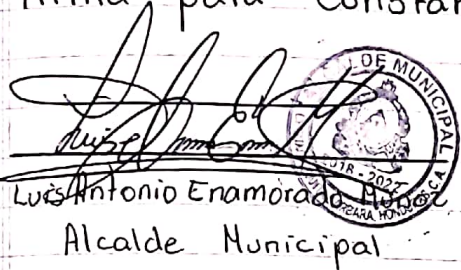 firma para constan
DE MUNICIPAL
2018 - 2022
HONDURAS, C.A.
Luis Antonio Enamorado Muñoz
Alcalde Municipal